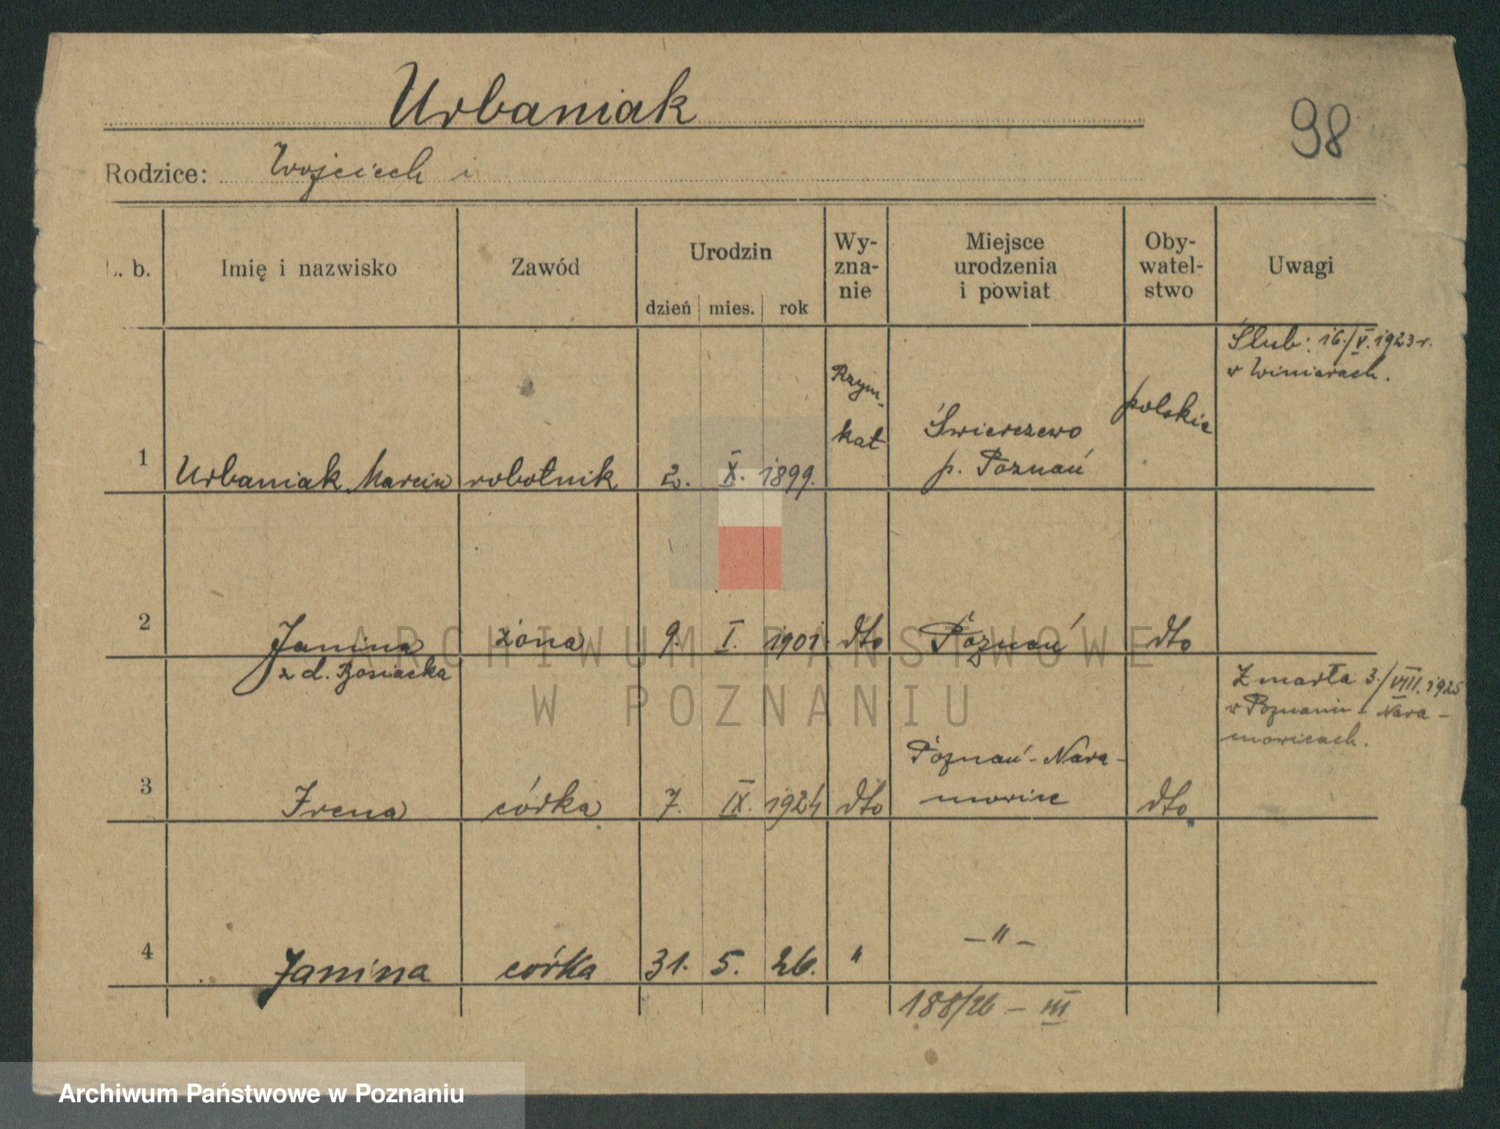 Urbaniak
98
Rodzice: Wojciech i
L. b.
Imię i nazwisko
Zawód
Urodzin
dzień mies. rok
Wy-
zna-
nie
Miejsce
urodzenia
i powiat
Oby-
watel-
stwo
Uwagi
1
Urbaniak Marcin
robotnik
2. X. 1899.
Rzym.-
kat
Świerczewo
p. Poznań
polskie
Ślub: 16./V.1923 r.
w Winiarach.
2
Janina
z d. Bosiacka
żona
9. I. 1901
dto
Poznań
dto
3
Irena
córka
7. IX. 1924
dto
Poznań-Nara-
mowice
dto
Zmarła 3./VIII.1925
w Poznaniu - Nara-
mowicach.
4
Janina
córka
31. 5. 26.
"
-"-
188/26 - III
ARCHIWUM PAŃSTWOWE
W POZNANIU
Archiwum Państwowe w Poznaniu